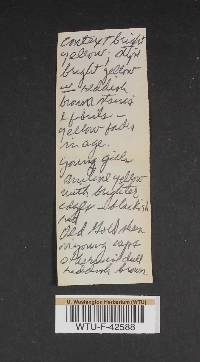 context bright
yellow, stipe
bright yellow
w reddish
brown stains
& fibrils -
yellow fades
in age.
young gills
aniline yellow
with brighter
edges - blackish
red
Old Gold sheen
on young caps
otherwise dull
reddish brown
U. Washington Herbarium (WTU)
WTU-F-42588